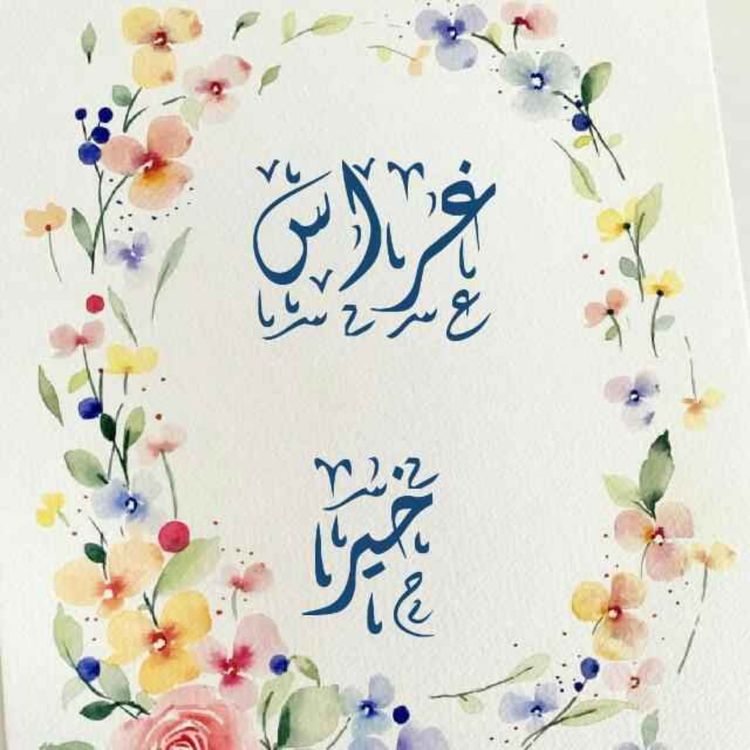 غراس
خير